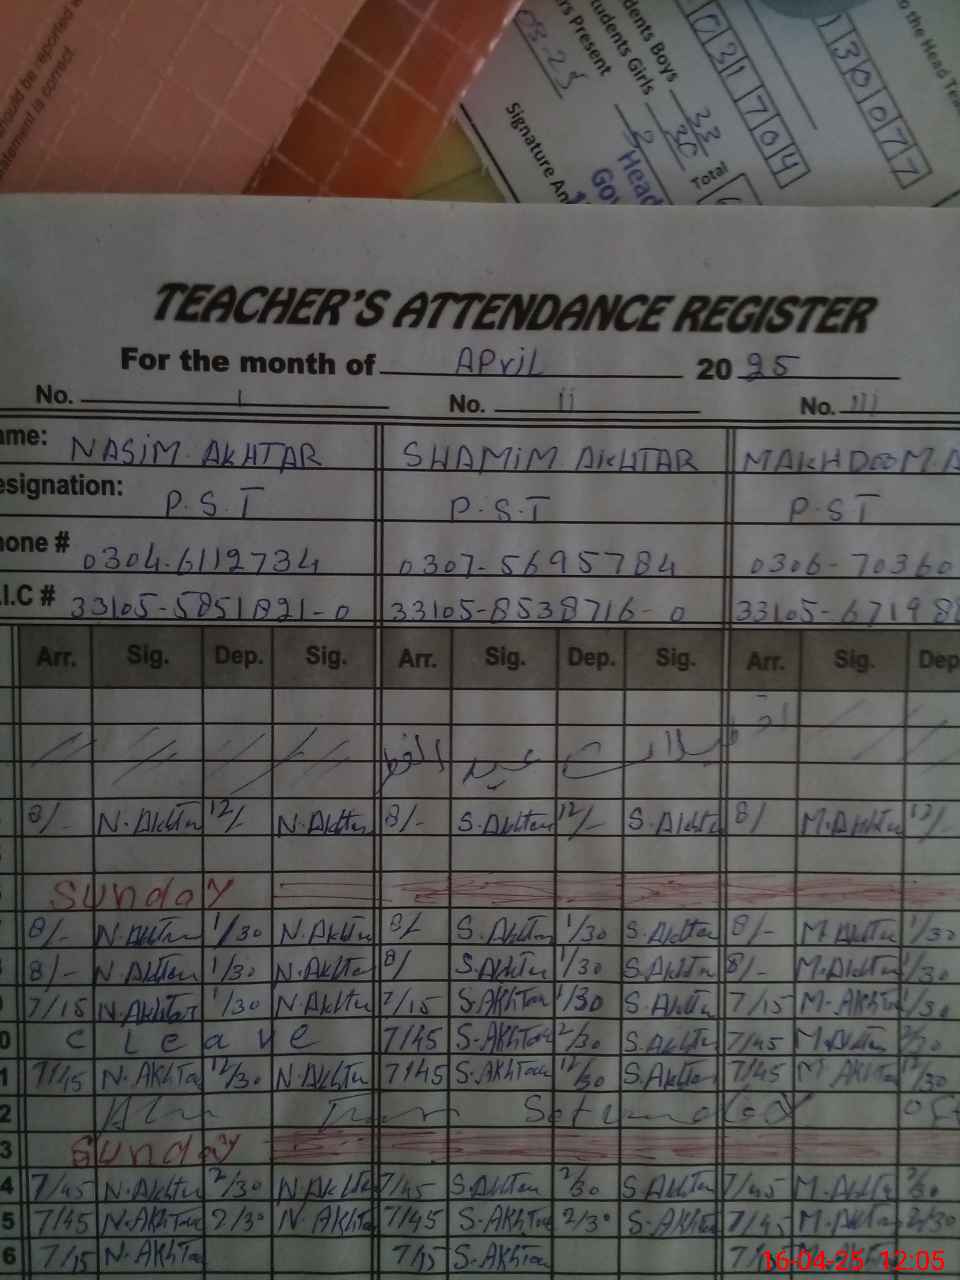 should be reported
statement is correct.
03-25
rs Present 2
Students Boys 33
Students Girls 30
Total
Signature An
Head
Gov
0 3 1 7 0 4
1 3 0 0 7 7
o the Head Tea
TEACHER'S ATTENDANCE REGISTER
For the month of APriL 20 25
No. I No. ii No. III
ame: NASiM AKHTAR SHAMiM AKHTAR MAKHDOOM A
esignation: P.S.T P.S.T P.ST
hone # 0304-6112734 0307-5695784 0306-70360
.I.C # 33105-5851821-0 33105-8538716-0 33105-67198
Arr. Sig. Dep. Sig. Arr. Sig. Dep. Sig. Arr. Sig. Dep
عید الفطر
8/- N.Akhtar 12/- N.Akhtar 8/- S.Akhtar 12/- S.Akhtar 8/ M.Akhtar 12/-
Sunday
8/- N.Akhtar 1/30 N.Akhtar 8/- S.Akhtar 1/30 S.Akhtar 8/- M.Akhtar 1/30
8/- N.Akhtar 1/30 N.Akhtar 8/ S.Akhtar 1/30 S.Akhtar 8/- M.Akhtar 1/30
7/15 N.Akhtar 1/30 N.Akhtar 7/15 S.AKhTar 1/30 S.Akhtar 7/15 M.AKhtar 1/30
0 c Leave 7/45 S.AKhTar 2/30 S.Akhtar 7/45 M.Akhtar 2/30
1 7/45 N.AKhTar 12/30 N.Akhtar 7/45 S.AKhTar 12/30 S.Akhtar 7/45 M.Akhtar 12/30
2
3 Sunday
4 7/45 N.Akhtar 2/30 N.Akhtar 7/45 S.Akhtar 2/30 S.Akhtar 7/45 M.Akhtar 2/30
5 7/45 N.AKhTar 2/30 N.AKhtar 7/45 S.AKhtar 2/30 S.Akhtar 7/45 M.Akhtar 2/30
6 7/15 N.AKhTar 7/15 S.AKhTar 7/15 M.AKhTar
16-04-25 12:05